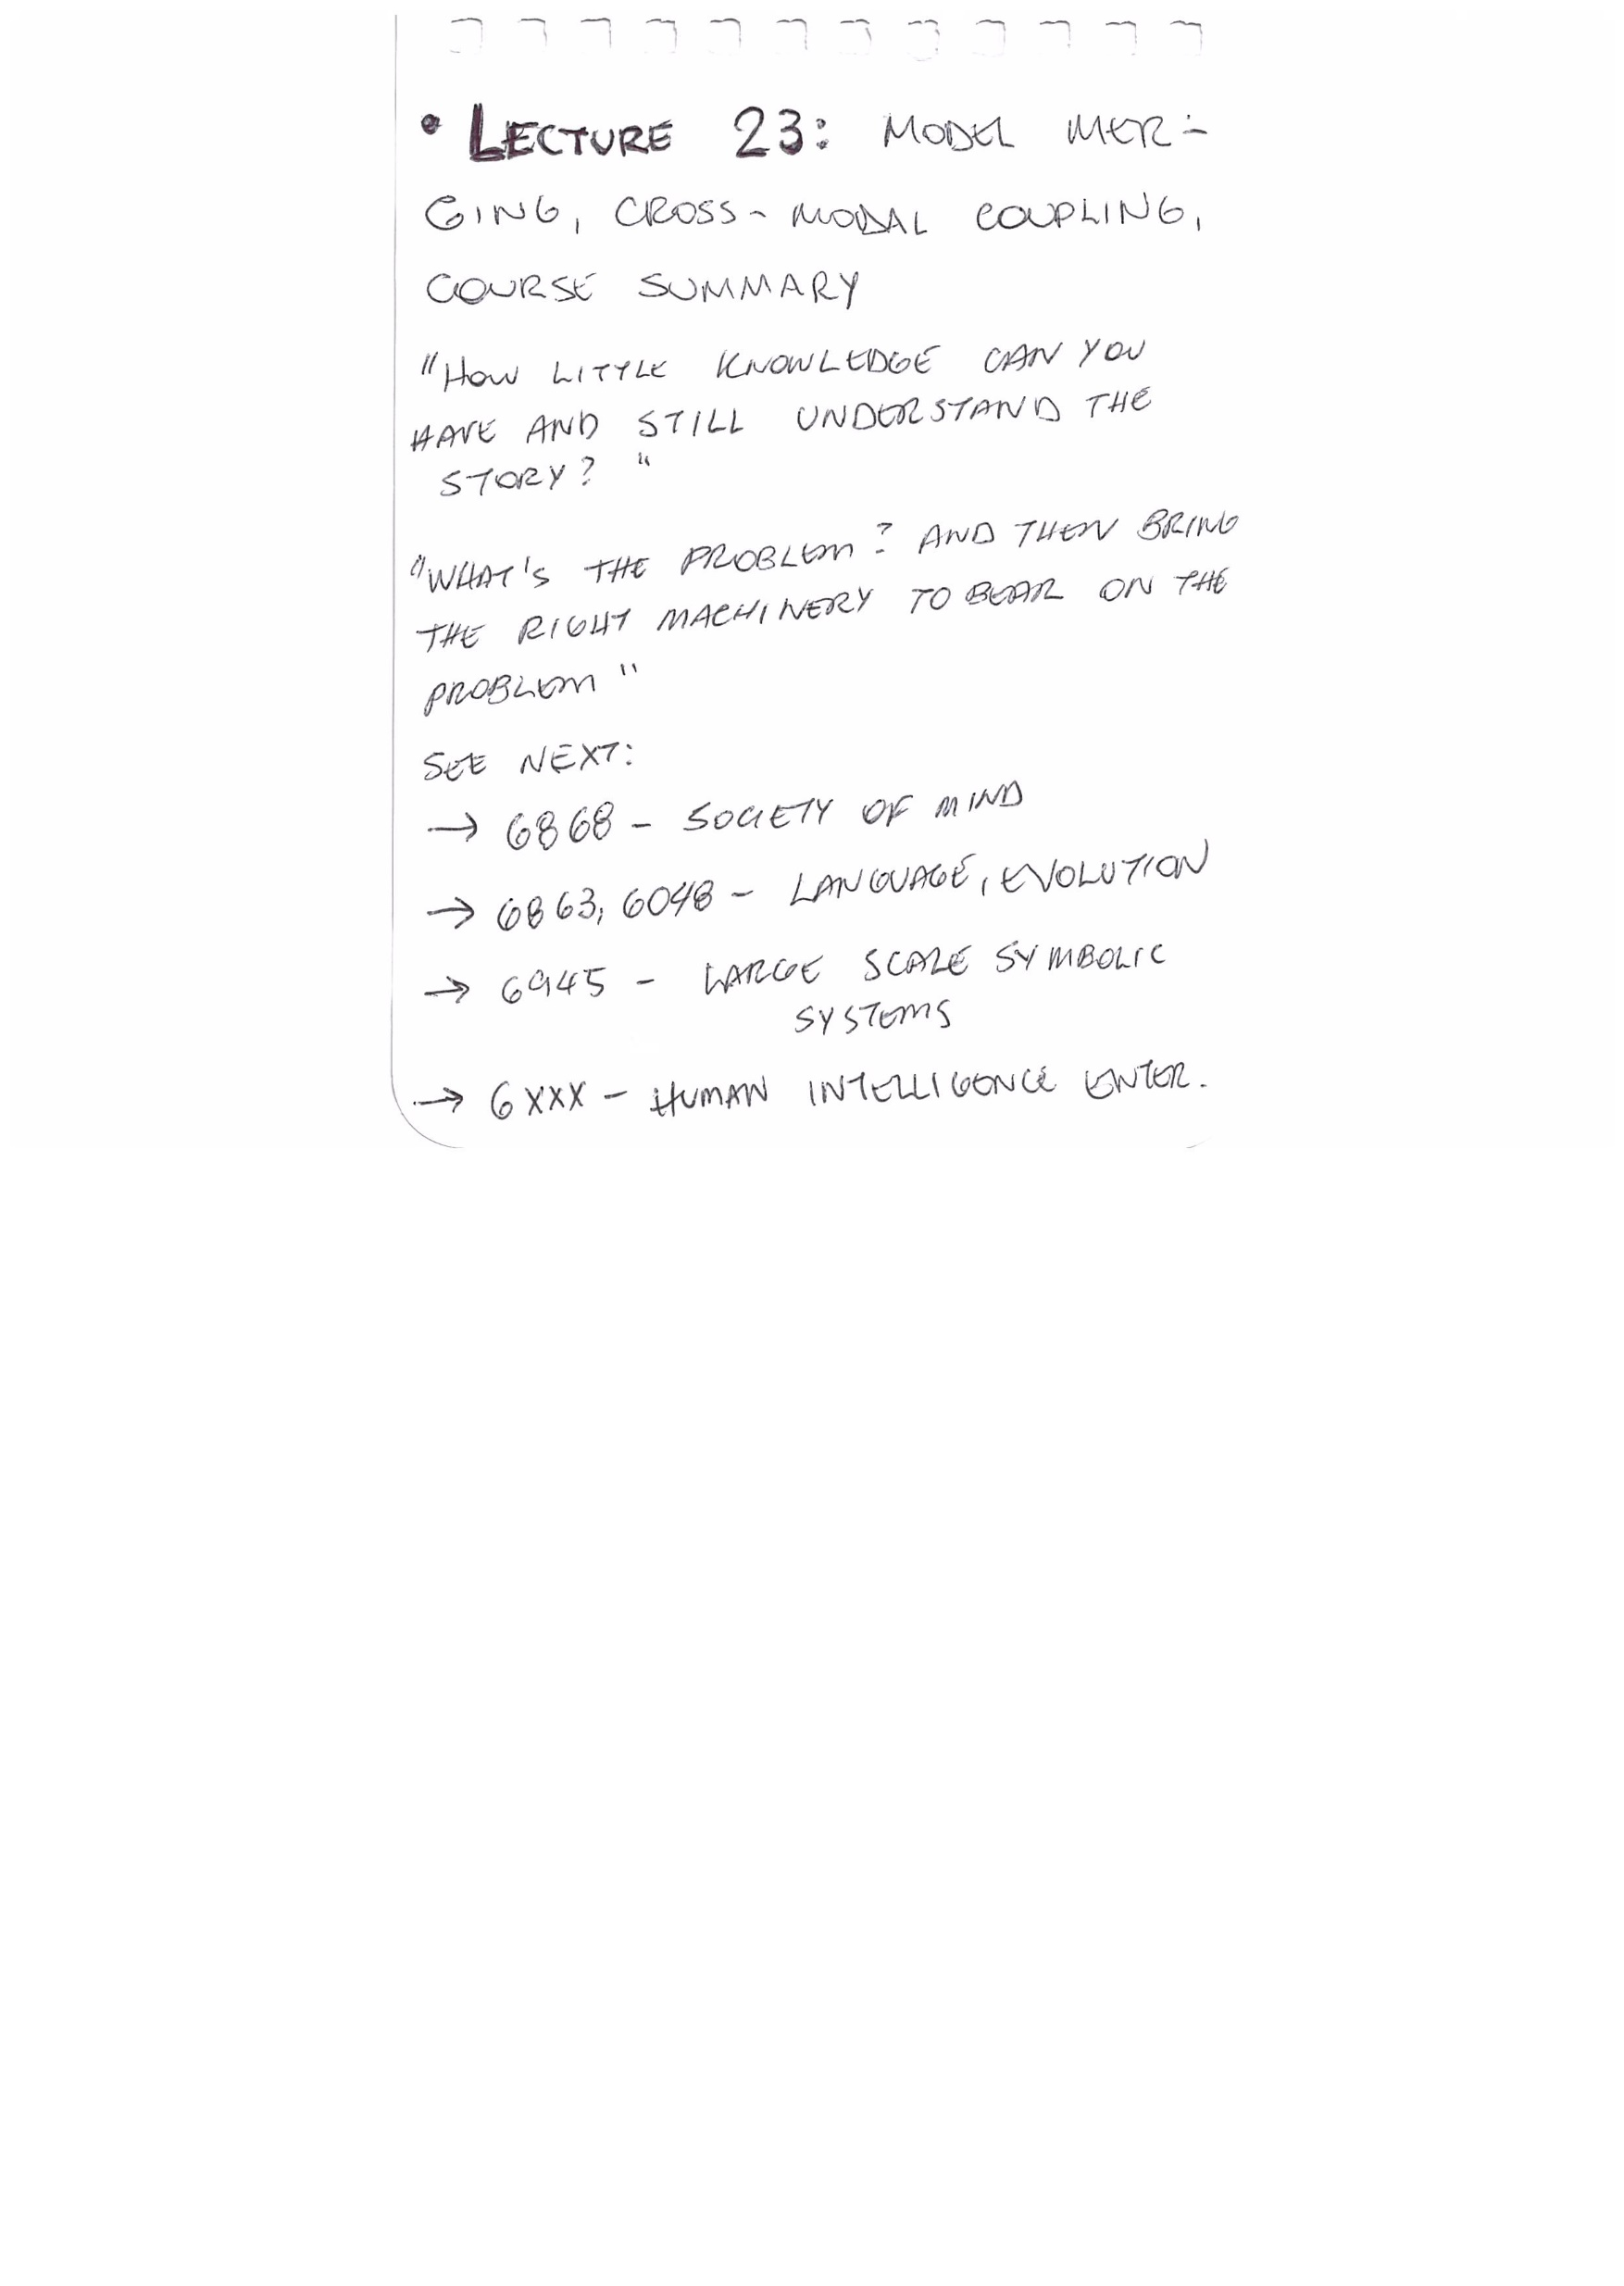 • LECTURE 23: MODEL MER-
GING, CROSS-MODAL COUPLING,
COURSE SUMMARY
"HOW LITTLE KNOWLEDGE CAN YOU
HAVE AND STILL UNDERSTAND THE
STORY?"
"WHAT'S THE PROBLEM? AND THEN BRING
THE RIGHT MACHINERY TO BEAR ON THE
PROBLEM"
SEE NEXT:
→ 6868 - SOCIETY OF MIND
→ 6863, 6048 - LANGUAGE, EVOLUTION
→ 6945 - LARGE SCALE SYMBOLIC
SYSTEMS
→ 6XXX - HUMAN INTELLIGENCE ENTER.